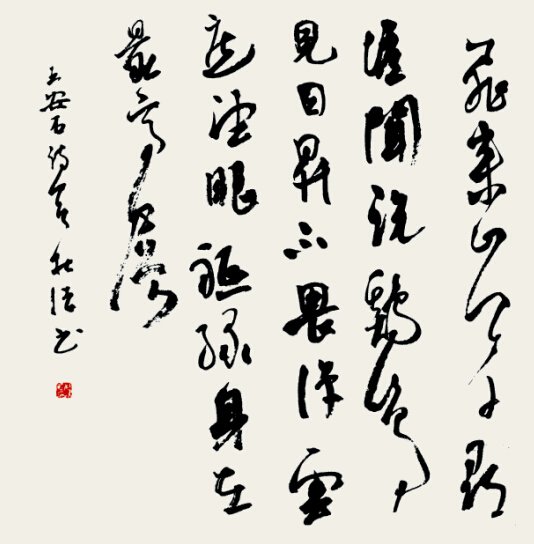 飛來山上千尋
塔聞說鷄鳴
見日昇不畏浮雲
遮望眼祗緣身在
最高層
王安石詩 书